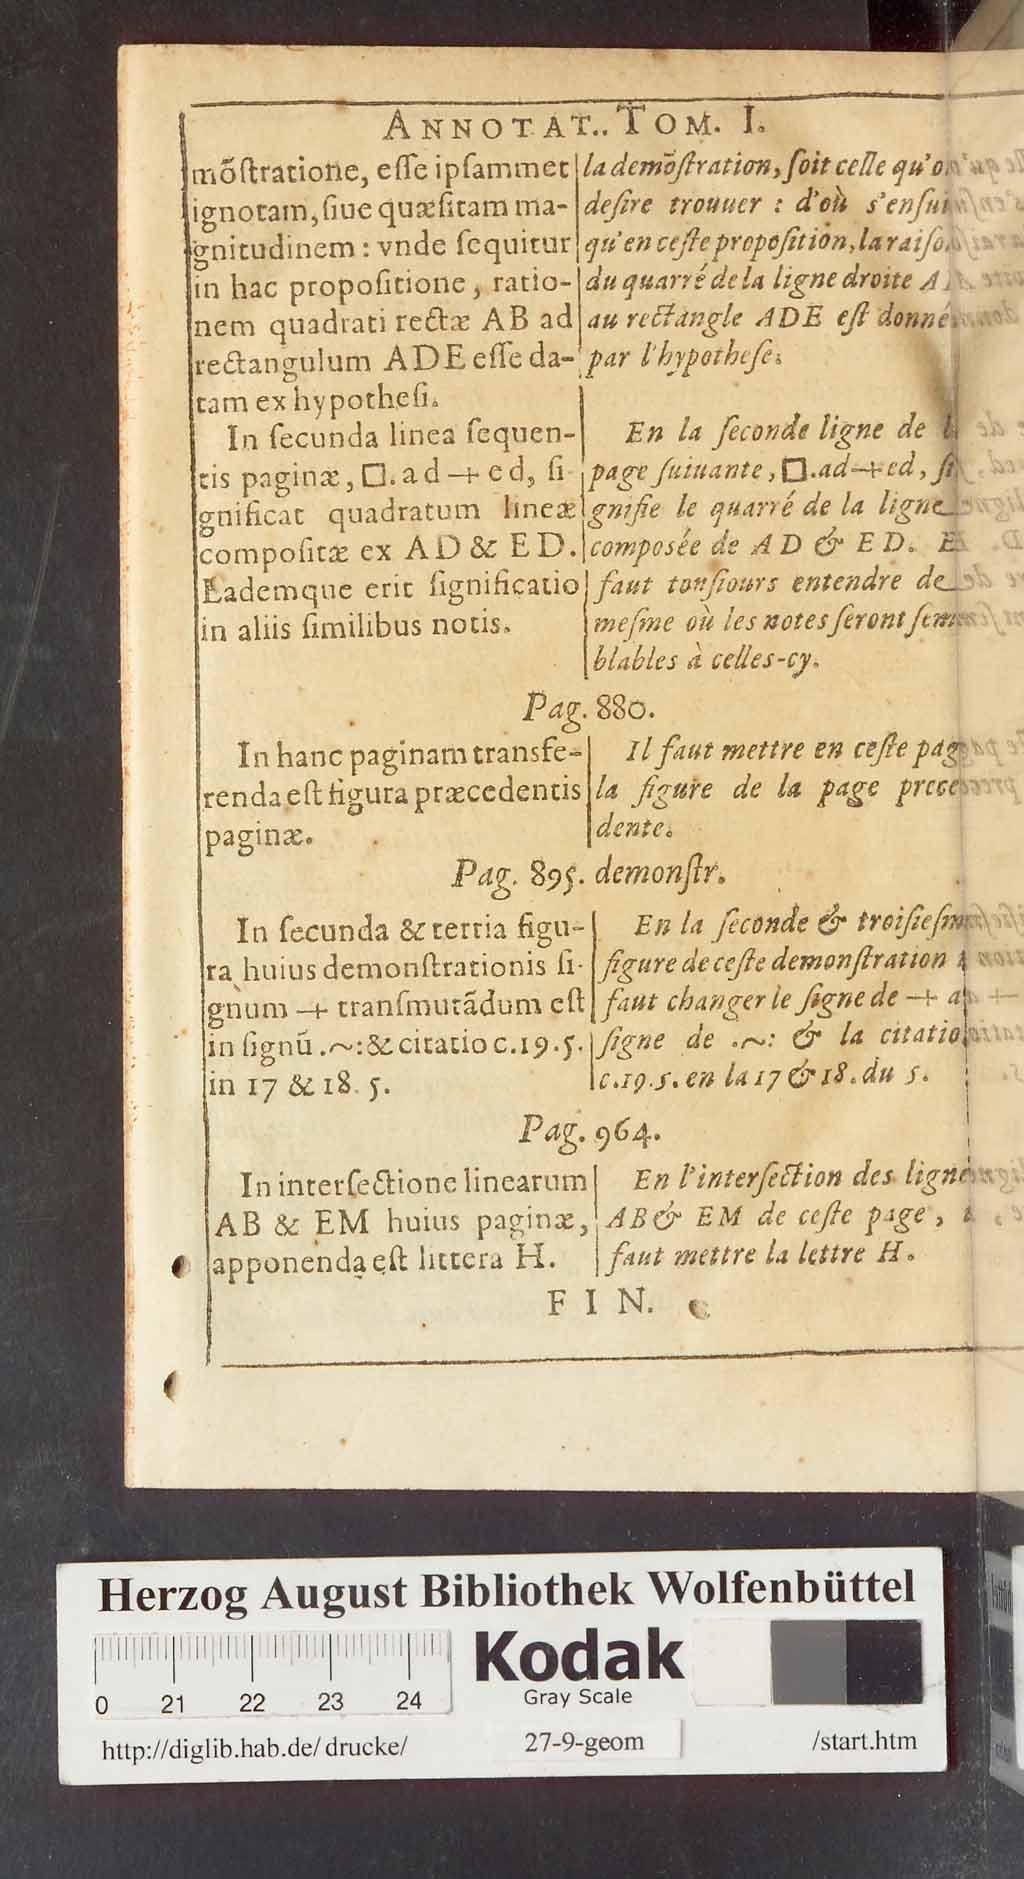 ANNOTAT.. TOM. I.
mõſtratione, eſſe ipſammet
ignotam, ſiue quæſitam ma-
gnitudinem: vnde ſequitur
in hac propoſitione, ratio-
nem quadrati rectæ AB ad
rectangulum ADE eſſe da-
tam ex hypotheſi.
In ſecunda linea ſequen-
tis paginæ, □. ad -+ ed, ſi
gnificat quadratum lineæ
compoſitæ ex AD & ED.
Eademque erit ſignificatio
in aliis ſimilibus notis.
la demõſtration, ſoit celle qu'o
deſire trouuer : d'où s'enſui
qu'en ceſte propoſition, la raiſo
du quarré de la ligne droite A
au rectangle ADE eſt donné
par l'hypotheſe.
En la ſeconde ligne de l
page ſuiuante, □.ad-+ed, ſi
gnifie le quarré de la ligne
compoſée de AD & ED. E
faut touſiours entendre de
meſme où les notes ſeront ſem
blables à celles-cy.
Pag. 880.
In hanc paginam transfe-
renda eſt figura præcedentis
paginæ.
Il faut mettre en ceſte pag
la figure de la page prece
dente.
Pag. 895. demonſtr.
In ſecunda & tertia figu-
ra huius demonſtrationis ſi-
gnum -+ tranſmutãdum eſt
in ſignũ .~: & citatio c. 19. 5.
in 17 & 18. 5.
En la ſeconde & troiſieſm
figure de ceſte demonſtration
faut changer le ſigne de -+ a
ſigne de .~: & la citatio
c. 19. 5. en la 17 & 18. du 5.
Pag. 964.
In interſectione linearum
AB & EM huius paginæ,
apponenda eſt littera H.
En l'interſection des ligne
AB & EM de ceſte page,
faut mettre la lettre H.
FIN.
Herzog August Bibliothek Wolfenbüttel
0 21 22 23 24
Kodak
Gray Scale
http://diglib.hab.de/drucke/ 27-9-geom /start.htm